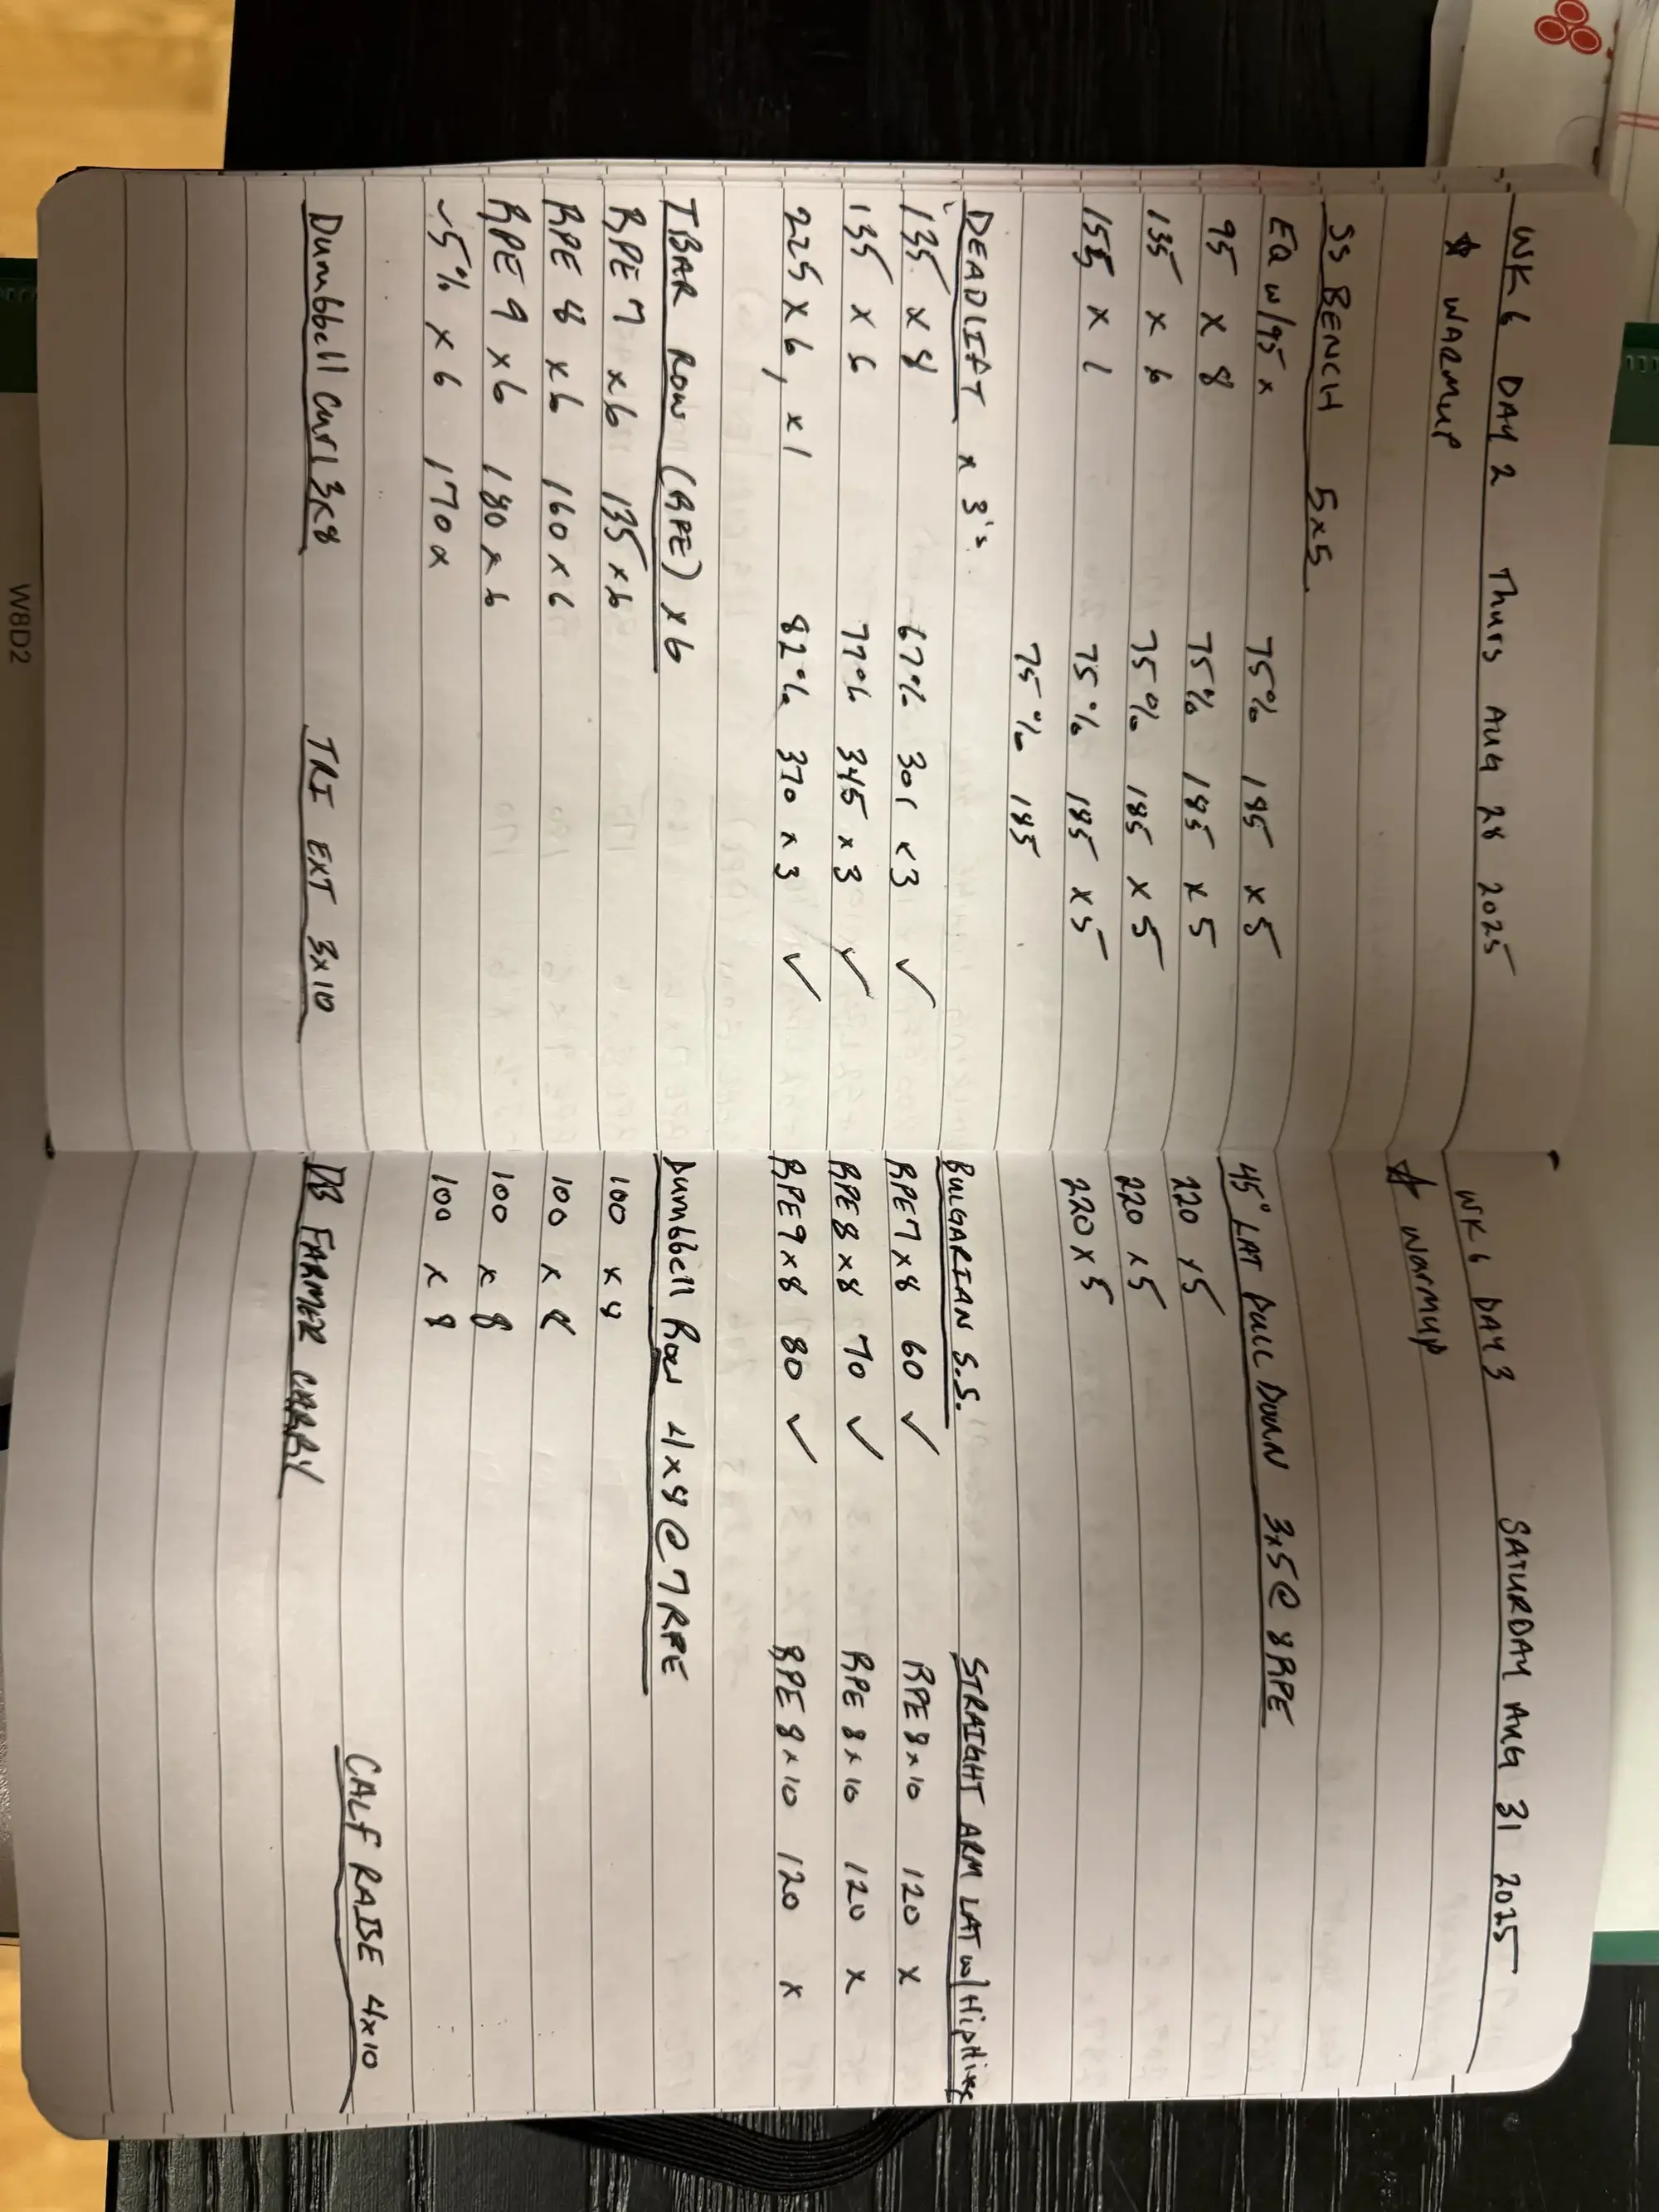 WK 6 DAY 2 Thurs AUG 28 2025
* WARMUP
SS BENCH 5x5
EQ w/95 x 75% 185 x 5
95 x 8 75% 185 x 5
135 x 6 75% 185 x 5
155 x 1 75% 185 x 5
75% 185
DEADLIFT x 3's
135 x 8 67% 301 x 3 ✓
135 x 6 77% 345 x 3 ✓
225 x 6, x 1 82% 370 x 3 ✓
TBAR ROW (RPE) x 6
RPE 7 x 6 135 x 6
RPE 8 x 6 160 x 6
RPE 9 x 6 180 x 6
✓5% x 6 170 x
Dumbbell Curl 3x8 TRI EXT 3x10
WK 6 DAY 3 SATURDAY AUG 31 2025
* WARMUP
45° LAT PULL DOWN 3x5 @ 8 RPE
220 x 5
220 x 5
220 x 5
BULGARIAN S.S. STRAIGHT ARM LAT w/ HipHinge
RPE 7 x 8 60 ✓ RPE 8 x 10 120 x
RPE 8 x 8 70 ✓ RPE 8 x 10 120 x
RPE 9 x 8 80 ✓ RPE 8 x 10 120 x
Dumbbell Row 4x8 @ 7 RPE
100 x 8
100 x 8
100 x 8
100 x 8
DB FARMER CARRY CALF RAISE 4x10
W8D2